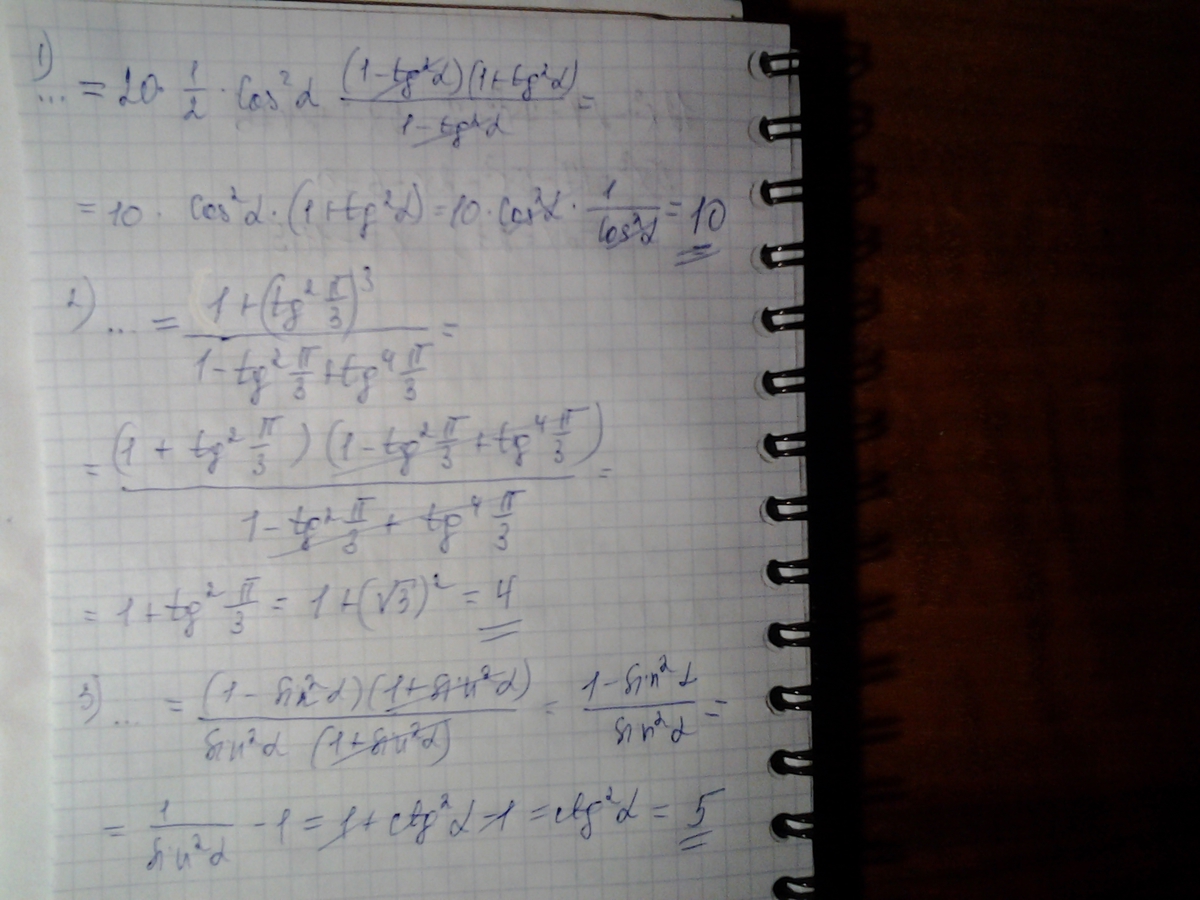 1) ... = 20 · 1/2 · cos²α (1-tg²α)(1+tg²α)/(1-tg²α) =
= 10 · cos²α · (1+tg²α) = 10 · cos²α · 1/cos²α = 10
2) ... = (1+(tg² π/3)³)/(1-tg² π/3+tg⁴ π/3) =
= (1+tg² π/3)(1-tg² π/3+tg⁴ π/3)/(1-tg² π/3+tg⁴ π/3) =
= 1+tg² π/3 = 1+(√3)² = 4
3) ... = (1-sin²α)(1+sin²α)/(sin²α (1+sin²α)) = (1-sin²α)/sin²α =
= 1/sin²α - 1 = 1+ctg²α-1 = ctg²α = 5